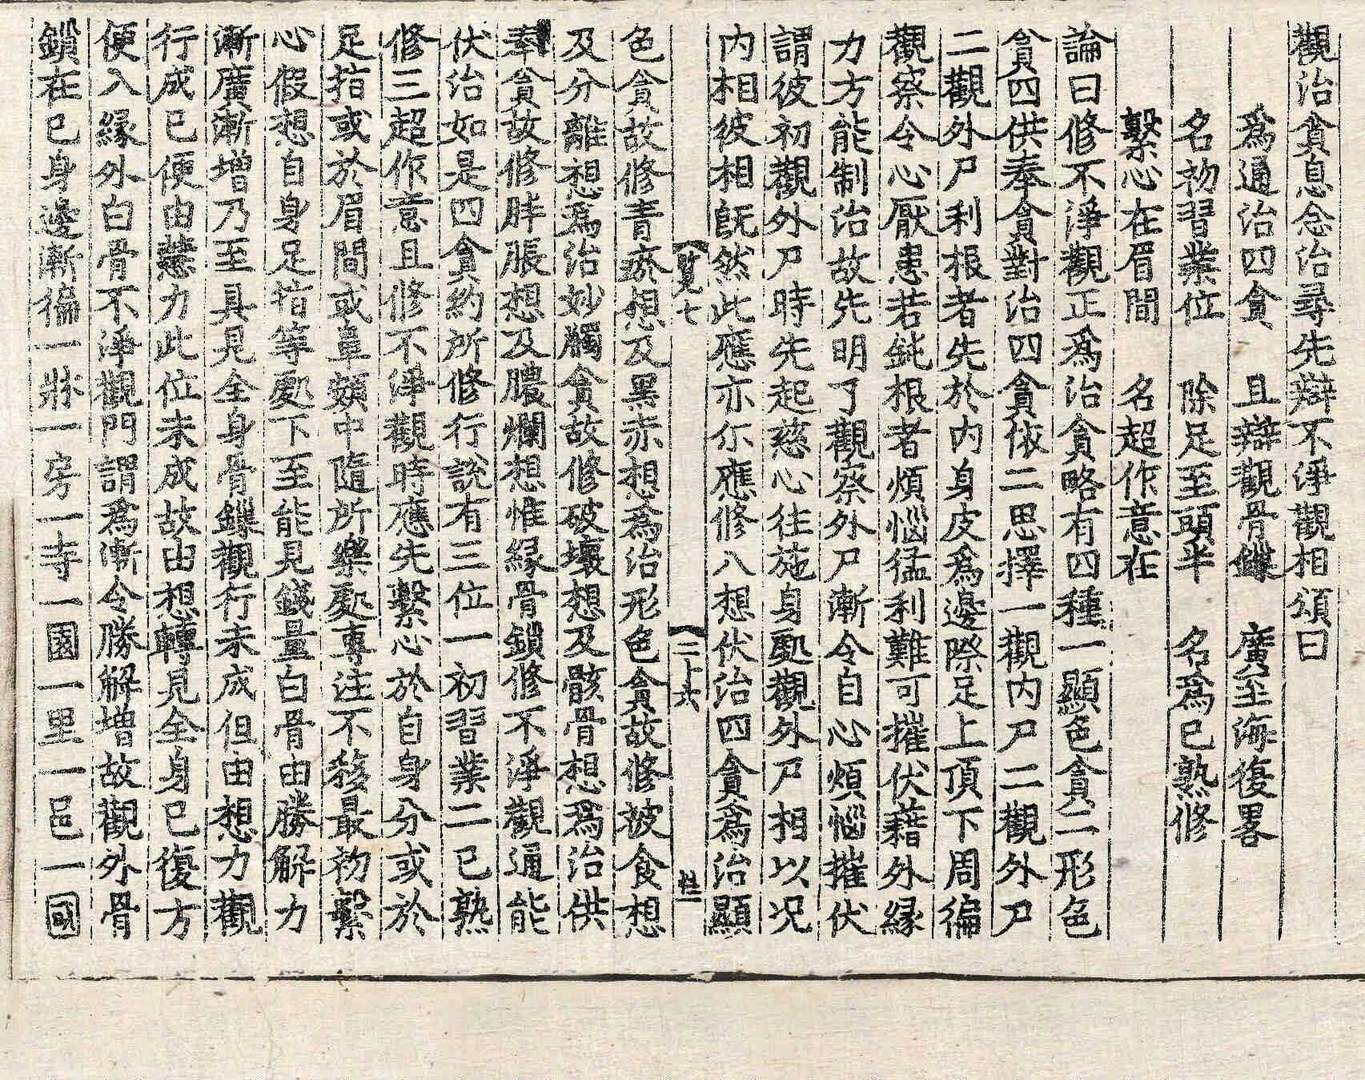 觀治貪息念治尋先辯不淨觀相頌曰
爲通治四貪　且辯觀骨鏁　廣至海復畧
名初習業位　除足至頭半　名爲已熟修
繫心在眉間　名超作意在
論曰修不淨觀正爲治貪略有四種一顯色貪二形色
貪四供奉貪對治四貪依二思擇一觀内尸二觀外尸
二觀外尸利根者先於内身皮爲邊際足上頂下周徧
觀察令心厭患若鈍根者煩惱猛利難可摧伏藉外緣
力方能制治故先明了觀察外尸漸令自心煩惱摧伏
謂彼初觀外尸時先起慈心往施身處觀外尸相以况
内相彼相旣然此應亦尒應修八想伏治四貪爲治顯
覽七　二十六
色貪故修青瘀想及黑赤想爲治形色貪故修被食想
及分離想爲治妙觸貪故修破壞想及骸骨想爲治供
奉貪故修胖脹想及膿爛想惟緣骨鎖修不淨觀通能
伏治如是四貪約所修行說有三位一初習業二已熟
修三超作意且修不淨觀時應先繫心於自身分或於
足指或於眉間或𪖙頞中隨所樂處專注不移最初繫
心假想自身足指等處下至能見錢量白骨由勝解力
漸廣漸增乃至具見全身骨鏁觀行未成但由想力觀
行成已便由慧力此位未成故由想轉見全身已復方
便入緣外白骨不淨觀門謂爲漸令勝解增故觀外骨
鎖在已身邊漸徧一牀一房一寺一園一里一邑一國